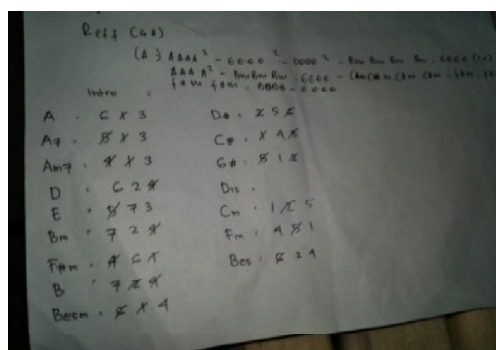 Reff (GA)
(A) AAAA² - EEEE² - DDDD² - Bm Bm Bm Bm - EEEE
AAA A² - Bm Bm Bm - EEEE - C#m C#m C#m C#m - F#m
F#m F#m - BBBB - EEEE
Intro :
A : 6 X 3
A7 : 5 X 3
Am7 : 4 X 3
D : 6 2 4
E : 5 7 3
Bm : 7 2 4
F#m : 4 6 X
B : 7 2 4
Besm : 6 X 4
D# : 2 5 6
C# : X 4 5
G# : 5 1 2
Dis :
Cm : 1 2 5
Fm : 4 5 1
Bes : 6 2 4